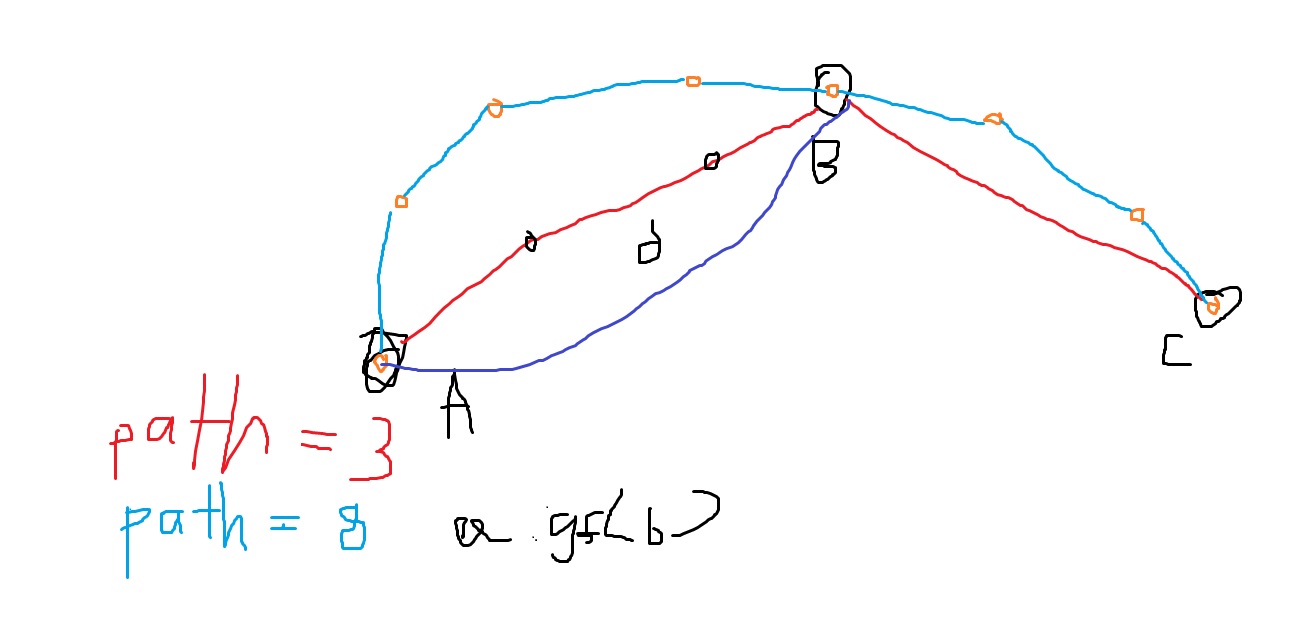 B
d
C
A
path = 3
path = 8
a . gf(b)